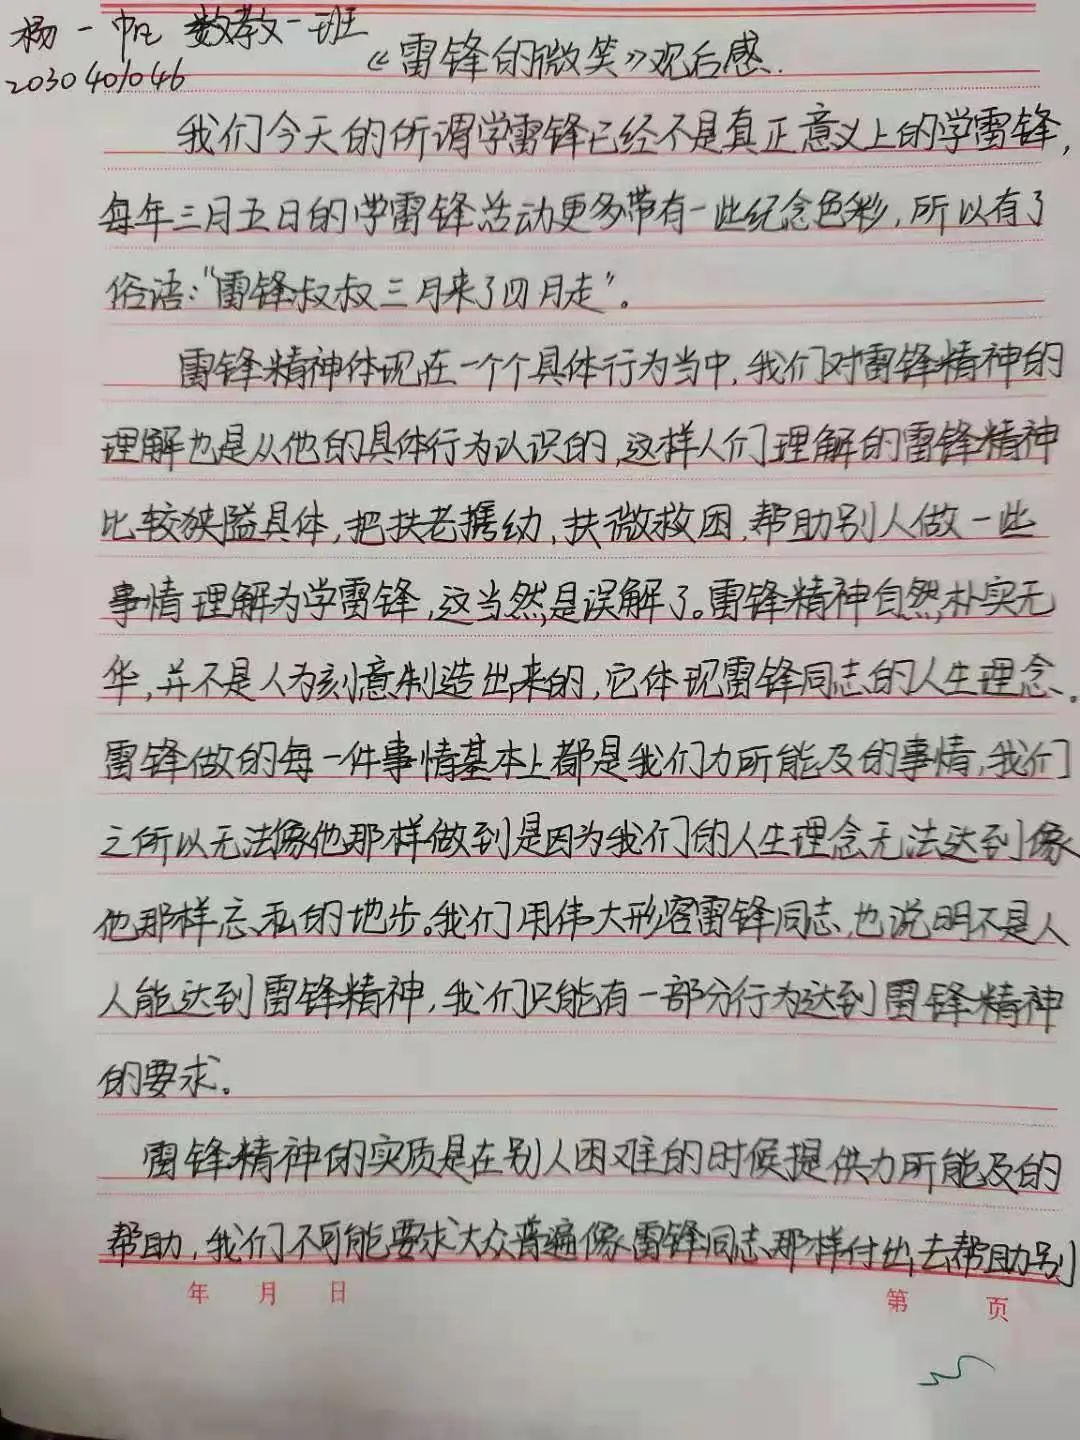 杨一帆 数教一班
2030401046
《雷锋的微笑》观后感.
我们今天的所谓学雷锋已经不是真正意义上的学雷锋，
每年三月五日的学雷锋活动更多带有一些纪念色彩，所以有了
俗语：“雷锋叔叔三月来了四月走”。
雷锋精神体现在一个个具体行为当中，我们对雷锋精神的
理解也是从他的具体行为认识的，这样人们理解的雷锋精神
比较狭隘具体，把扶老携幼，扶微救困，帮助别人做一些
事情理解为学雷锋，这当然是误解了。雷锋精神自然，朴实无
华，并不是人为刻意制造出来的，它体现雷锋同志的人生理念。
雷锋做的每一件事情基本上都是我们力所能及的事情，我们
之所以无法像他那样做到是因为我们的人生理念无法达到像
他那样忘私的地步。我们用伟大形容雷锋同志，也说明不是人
人能达到雷锋精神，我们只能有一部分行为达到雷锋精神
的要求。
雷锋精神的实质是在别人困难的时候提供力所能及的
帮助，我们不可能要求大众普遍像雷锋同志那样付出，去帮助别
年 月 日
第 页